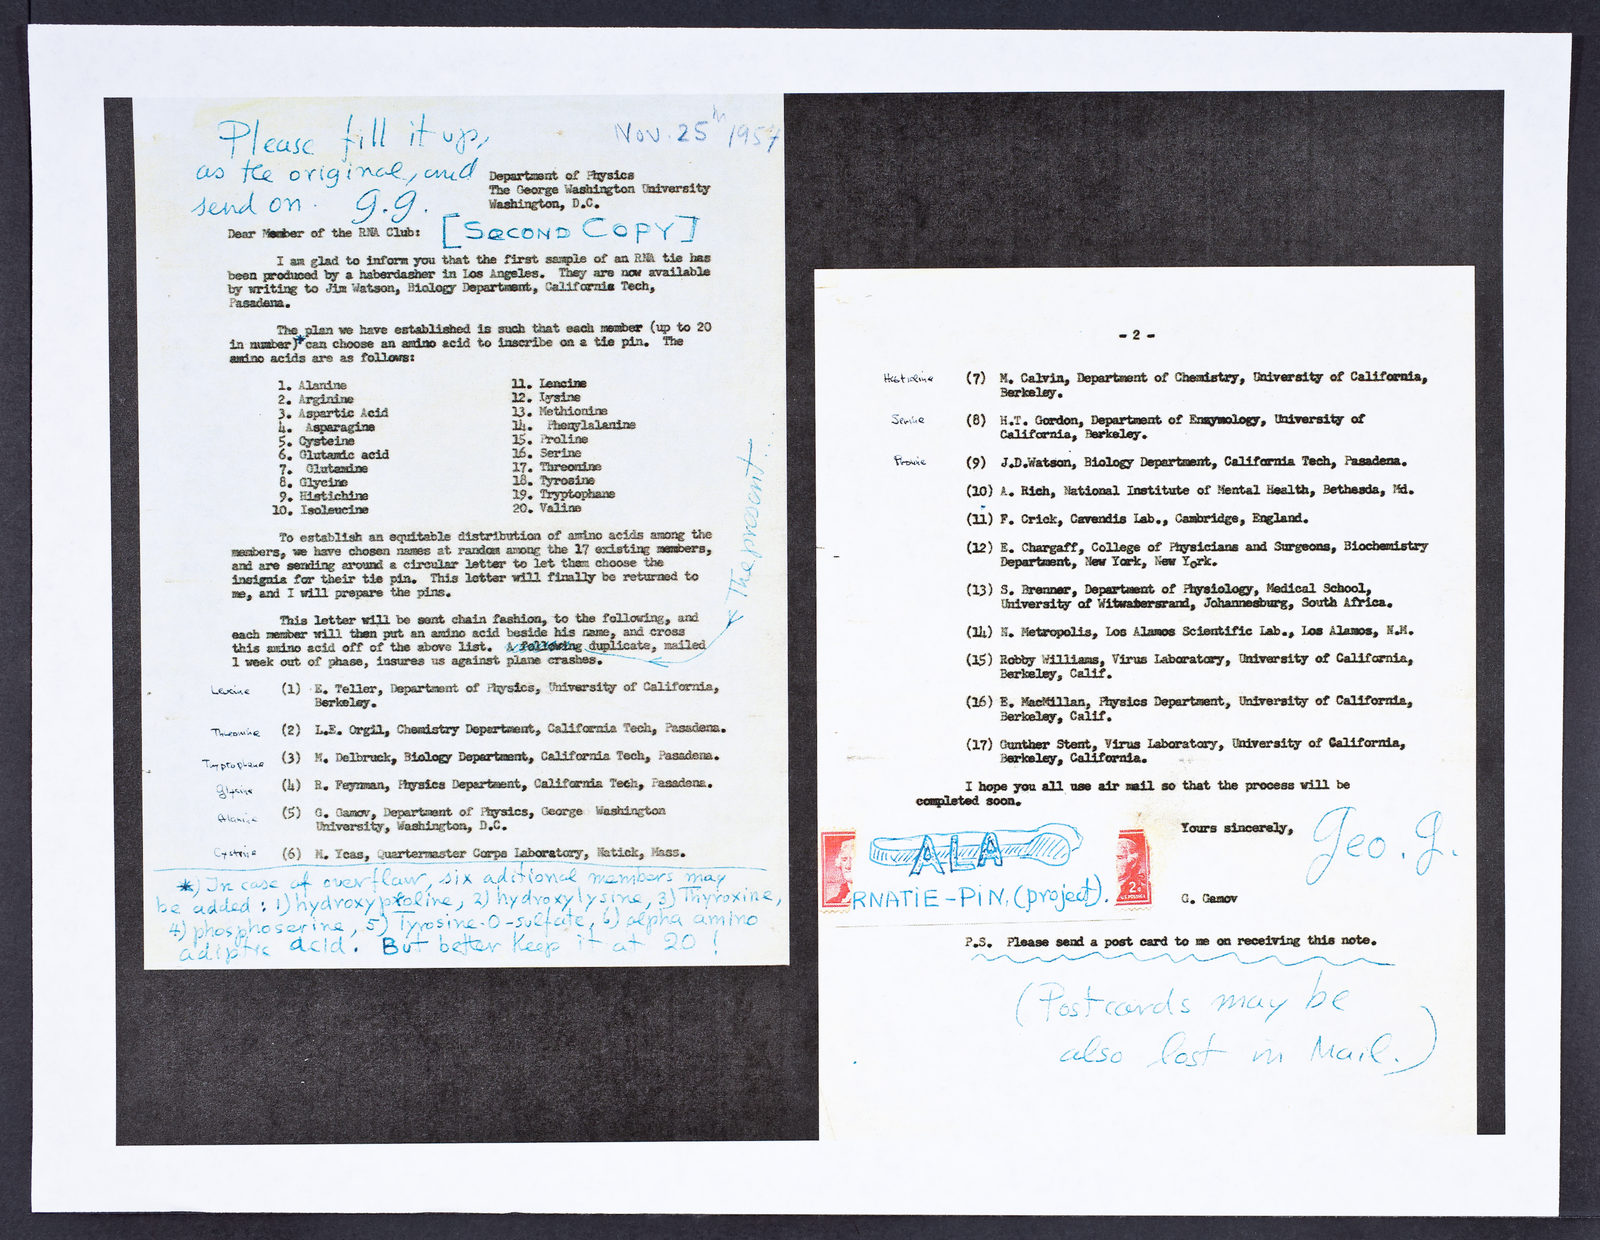 Please fill it up,
as the original, and
send on. G.G.
Nov. 25th 1954
Department of Physics
The George Washington University
Washington, D.C.
Dear Member of the RNA Club:
[SECOND COPY]
I am glad to inform you that the first sample of an RNA tie has
been produced by a haberdasher in Los Angeles. They are now available
by writing to Jim Watson, Biology Department, California Tech,
Pasadena.
The plan we have established is such that each member (up to 20
in number)* can choose an amino acid to inscribe on a tie pin. The
amino acids are as follows:
1. Alanine
2. Arginine
3. Aspartic Acid
4. Asparagine
5. Cysteine
6. Glutamic acid
7. Glutamine
8. Glycine
9. Histichine
10. Isoleucine
11. Lencine
12. Lysine
13. Methionine
14. Phenylalanine
15. Proline
16. Serine
17. Threonine
18. Tyrosine
19. Tryptophane
20. Valine
To establish an equitable distribution of amino acids among the
members, we have chosen names at random among the 17 existing members,
and are sending around a circular letter to let them choose the
insignia for their tie pin. This letter will finally be returned to
me, and I will prepare the pins.
This letter will be sent chain fashion, to the following, and
each member will then put an amino acid beside his name, and cross
this amino acid off of the above list. A following duplicate, mailed
1 week out of phase, insures us against plane crashes.
* The present
Leucine (1) E. Teller, Department of Physics, University of California,
Berkeley.
Threonine (2) L.E. Orgil, Chemistry Department, California Tech, Pasadena.
Tryptophane (3) M. Delbruck, Biology Department, California Tech, Pasadena.
Glycine (4) R. Feynman, Physics Department, California Tech, Pasadena.
Alanine (5) G. Gamov, Department of Physics, George Washington
University, Washington, D.C.
Cystine (6) M. Ycas, Quartermaster Corps Laboratory, Natick, Mass.
*) In case of overflaw, six aditional members may
be added: 1) hydroxyproline, 2) hydroxylysine, 3) Thyroxine,
4) phosphoserine, 5) Tyrosine-O-sulfate, 6) alpha amino
adiptic acid. But better keep it at 20!
- 2 -
Histidine (7) M. Calvin, Department of Chemistry, University of California,
Berkeley.
Serine (8) H.T. Gordon, Department of Enzymology, University of
California, Berkeley.
Proline (9) J.D.Watson, Biology Department, California Tech, Pasadena.
(10) A. Rich, National Institute of Mental Health, Bethesda, Md.
(11) F. Crick, Cavendis Lab., Cambridge, England.
(12) E. Chargaff, College of Physicians and Surgeons, Biochemistry
Department, New York, New York.
(13) S. Brenner, Department of Physiology, Medical School,
University of Witwatersrand, Johannesburg, South Africa.
(14) N. Metropolis, Los Alamos Scientific Lab., Los Alamos, N.M.
(15) Robby Williams, Virus Laboratory, University of California,
Berkeley, Calif.
(16) E. MacMillan, Physics Department, University of California,
Berkeley, Calif.
(17) Gunther Stent, Virus Laboratory, University of California,
Berkeley, California.
I hope you all use air mail so that the process will be
completed soon.
Yours sincerely,
Geo. G.
ALA
RNATIE-PIN. (project).
2¢
G. Gamov
P.S. Please send a post card to me on receiving this note.
(Postcards may be
also lost in Mail.)